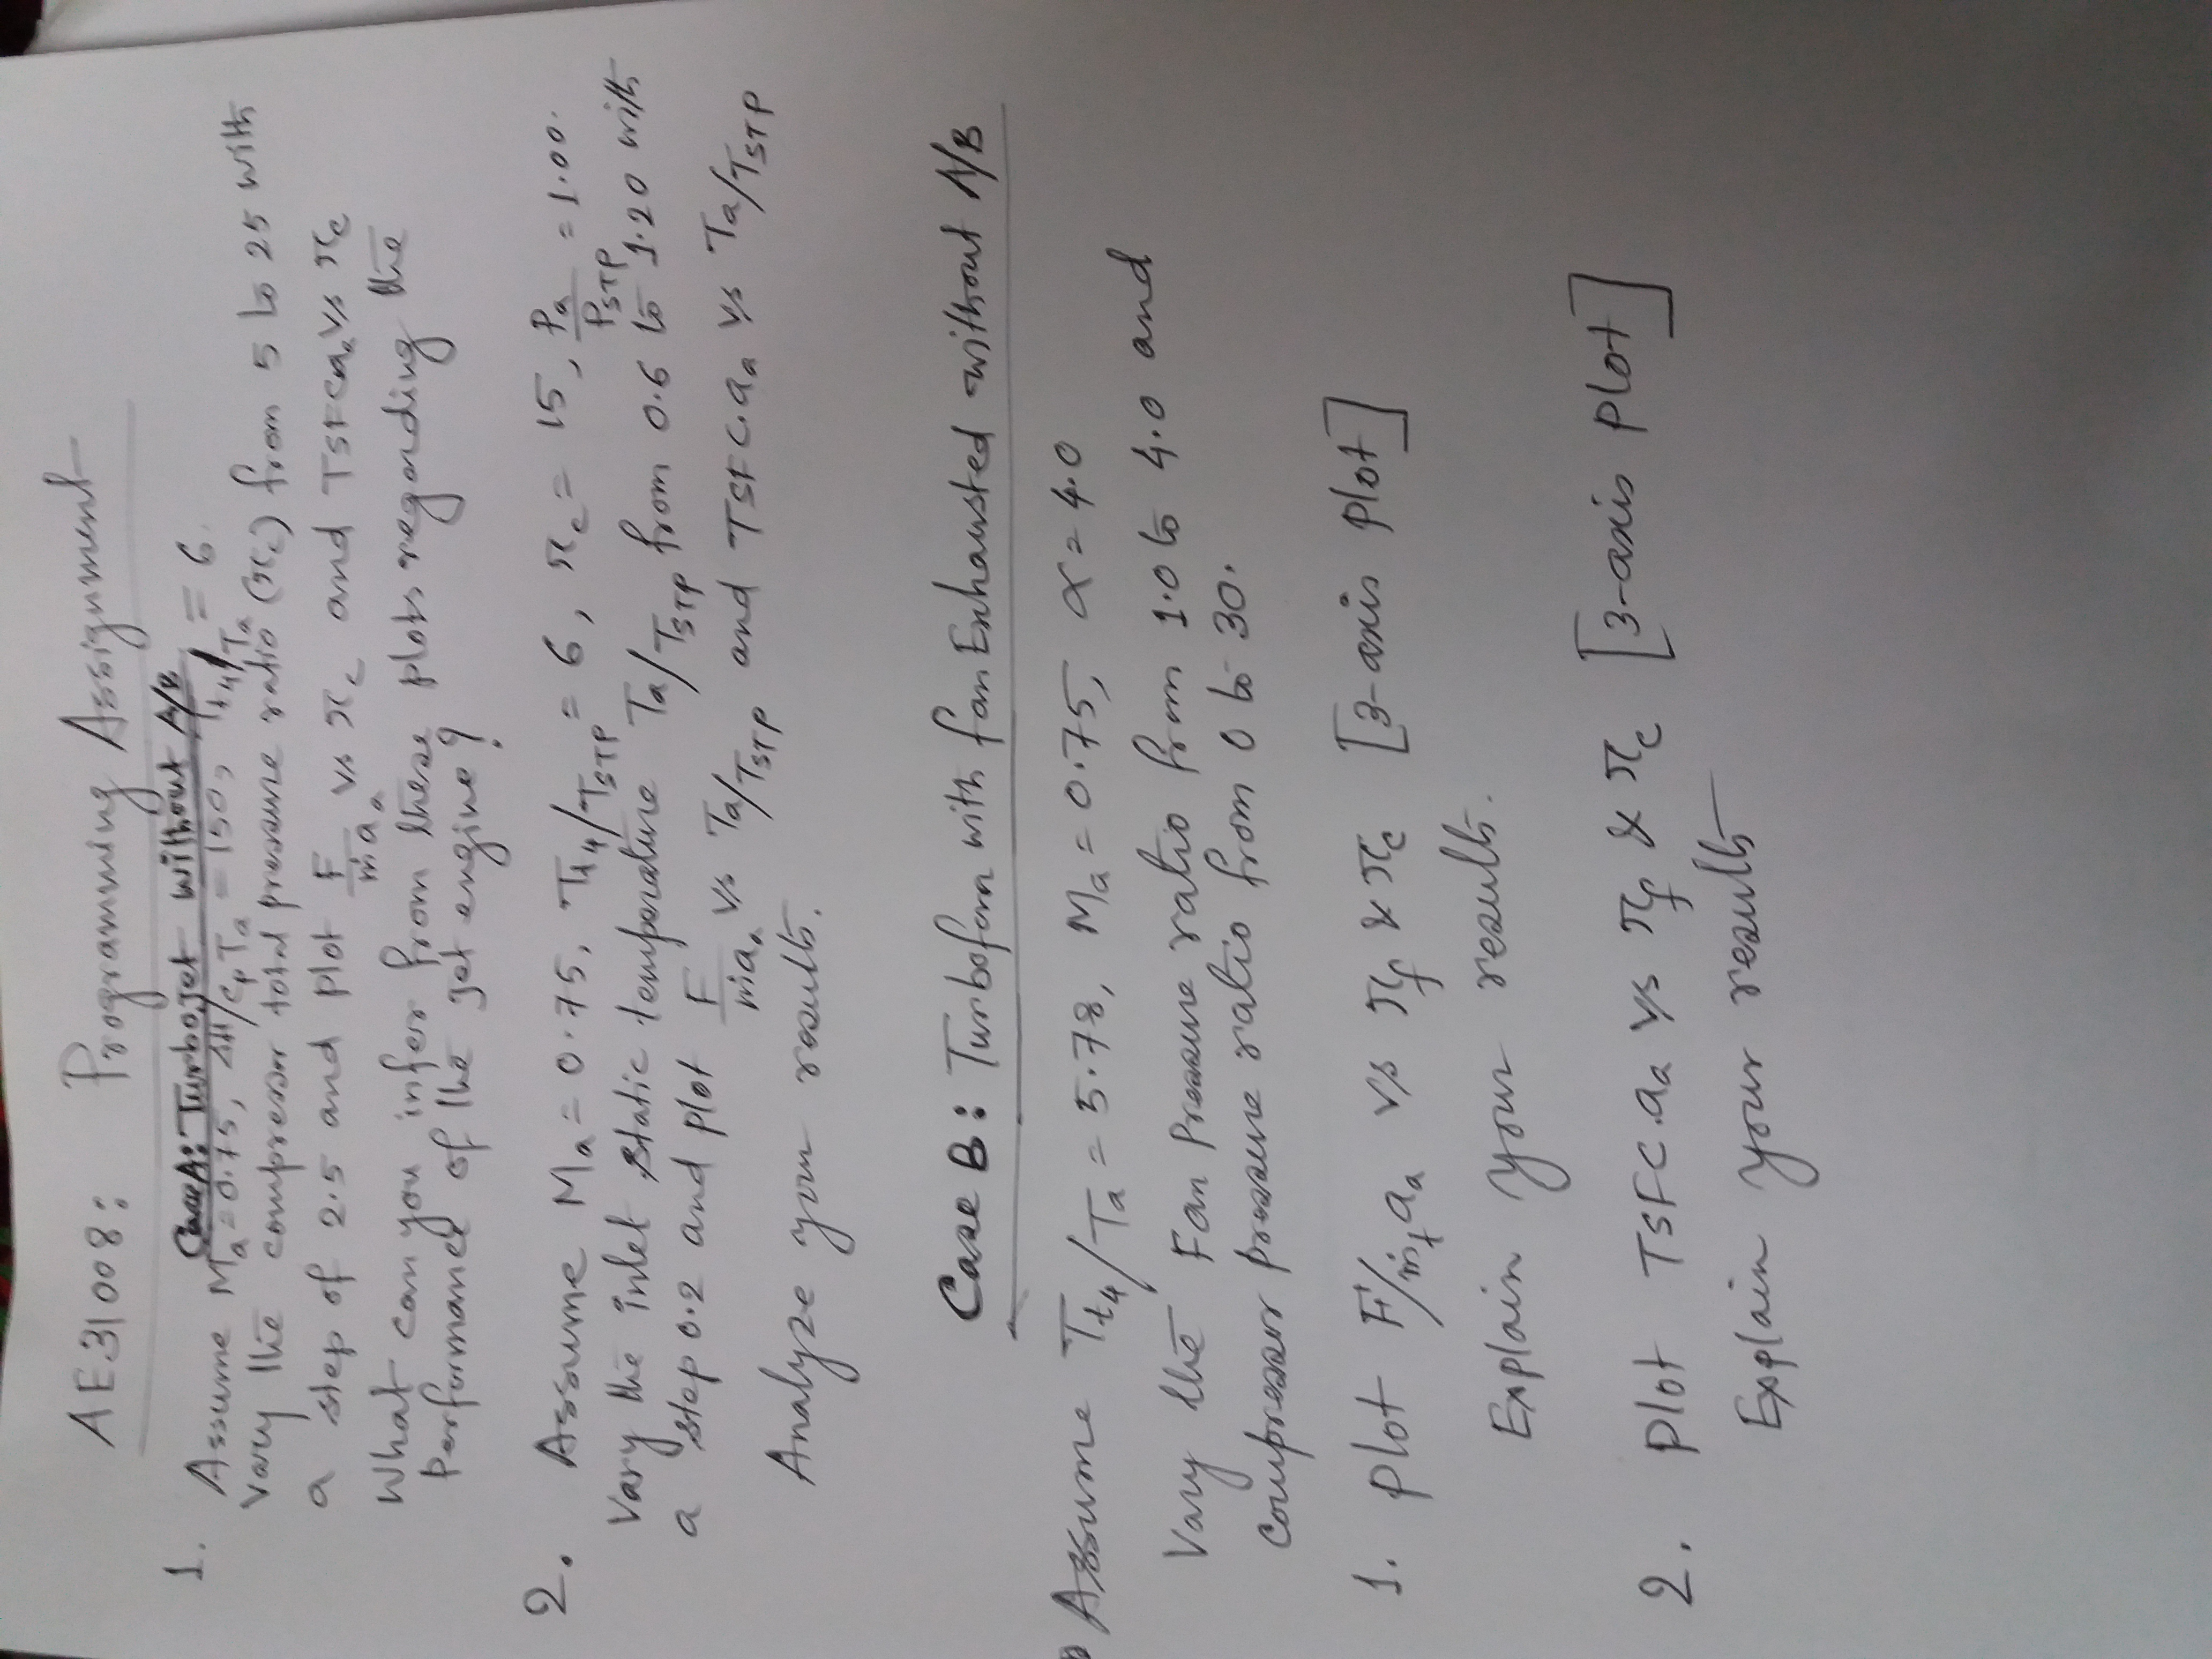 AE31008: Programming Assignment
Case A: Turbojet without A/B
1. Assume Ma=0.75, ΔH/CpTa = 150, Tt4/Ta = 6.
Vary the compressor total pressure ratio (πc) from 5 to 25 with
a step of 2.5 and plot F/ṁaa vs πc and TSFCaa vs πc
What can you infer from these plots regarding the
Performance of the jet engine?
2. Assume Ma=0.75, Tt4/TSTP = 6, πc = 15, Pa/PSTP = 1.00.
Vary the inlet static temperature Ta/TSTP from 0.6 to 1.20 with
a step 0.2 and plot F/ṁaa vs Ta/TSTP and TSFC.aa vs Ta/TSTP
Analyze your results.
Case B: Turbofan with fan Exhausted without A/B
Assume Tt4/Ta = 5.78, Ma = 0.75, α = 4.0
Vary the Fan Pressure ratio from 1.0 to 4.0 and
compressor pressure ratio from 0 to 30.
1. plot F/ṁtaa vs πf & πc [3-axis plot]
Explain your results.
2. plot TSFC.aa vs πf & πc [3-axis plot]
Explain your results